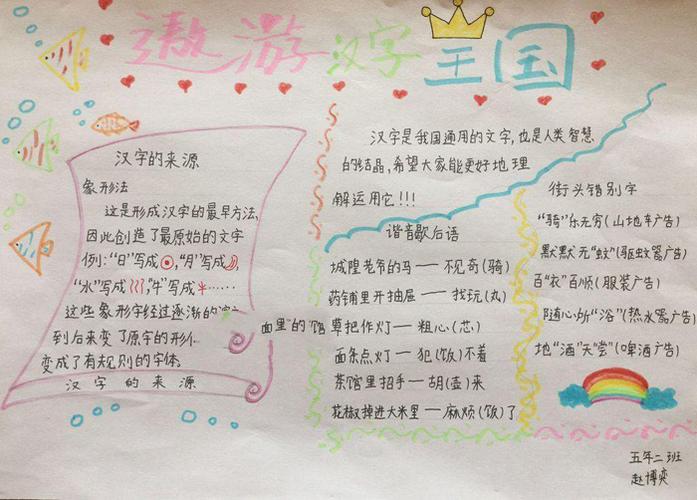 遨游汉字王国
汉字的来源
象形法
这是形成汉字的最早方法,
因此创造了最原始的文字
例:“日”写成 ,“月”写成 ,
“水”写成 ,“牛”写成 ……
这些象形字经过逐渐的演
到后来变了原字的形
变成了有规则的字体。
汉字的来源
汉字是我国通用的文字,也是人类智慧
的结晶,希望大家能更好地理
解运用它!!!
谐音歇后语
城隍老爷的马——不见奇(骑)
药铺里开抽屉——找玩(丸)
面里”的“馅
草把作灯——粗心(芯)
面条点灯——犯(饭)不着
茶馆里招手——胡(壶)来
花椒掉进大米里——麻烦(饭)了
街头错别字
“骑”乐无穷(山地车广告)
默默无“蚊”(驱蚊器广告)
百“衣”百顺(服装广告)
随心所“浴”(热水器广告)
地“酒”天堂”(啤酒广告)
五年二班
赵博奕